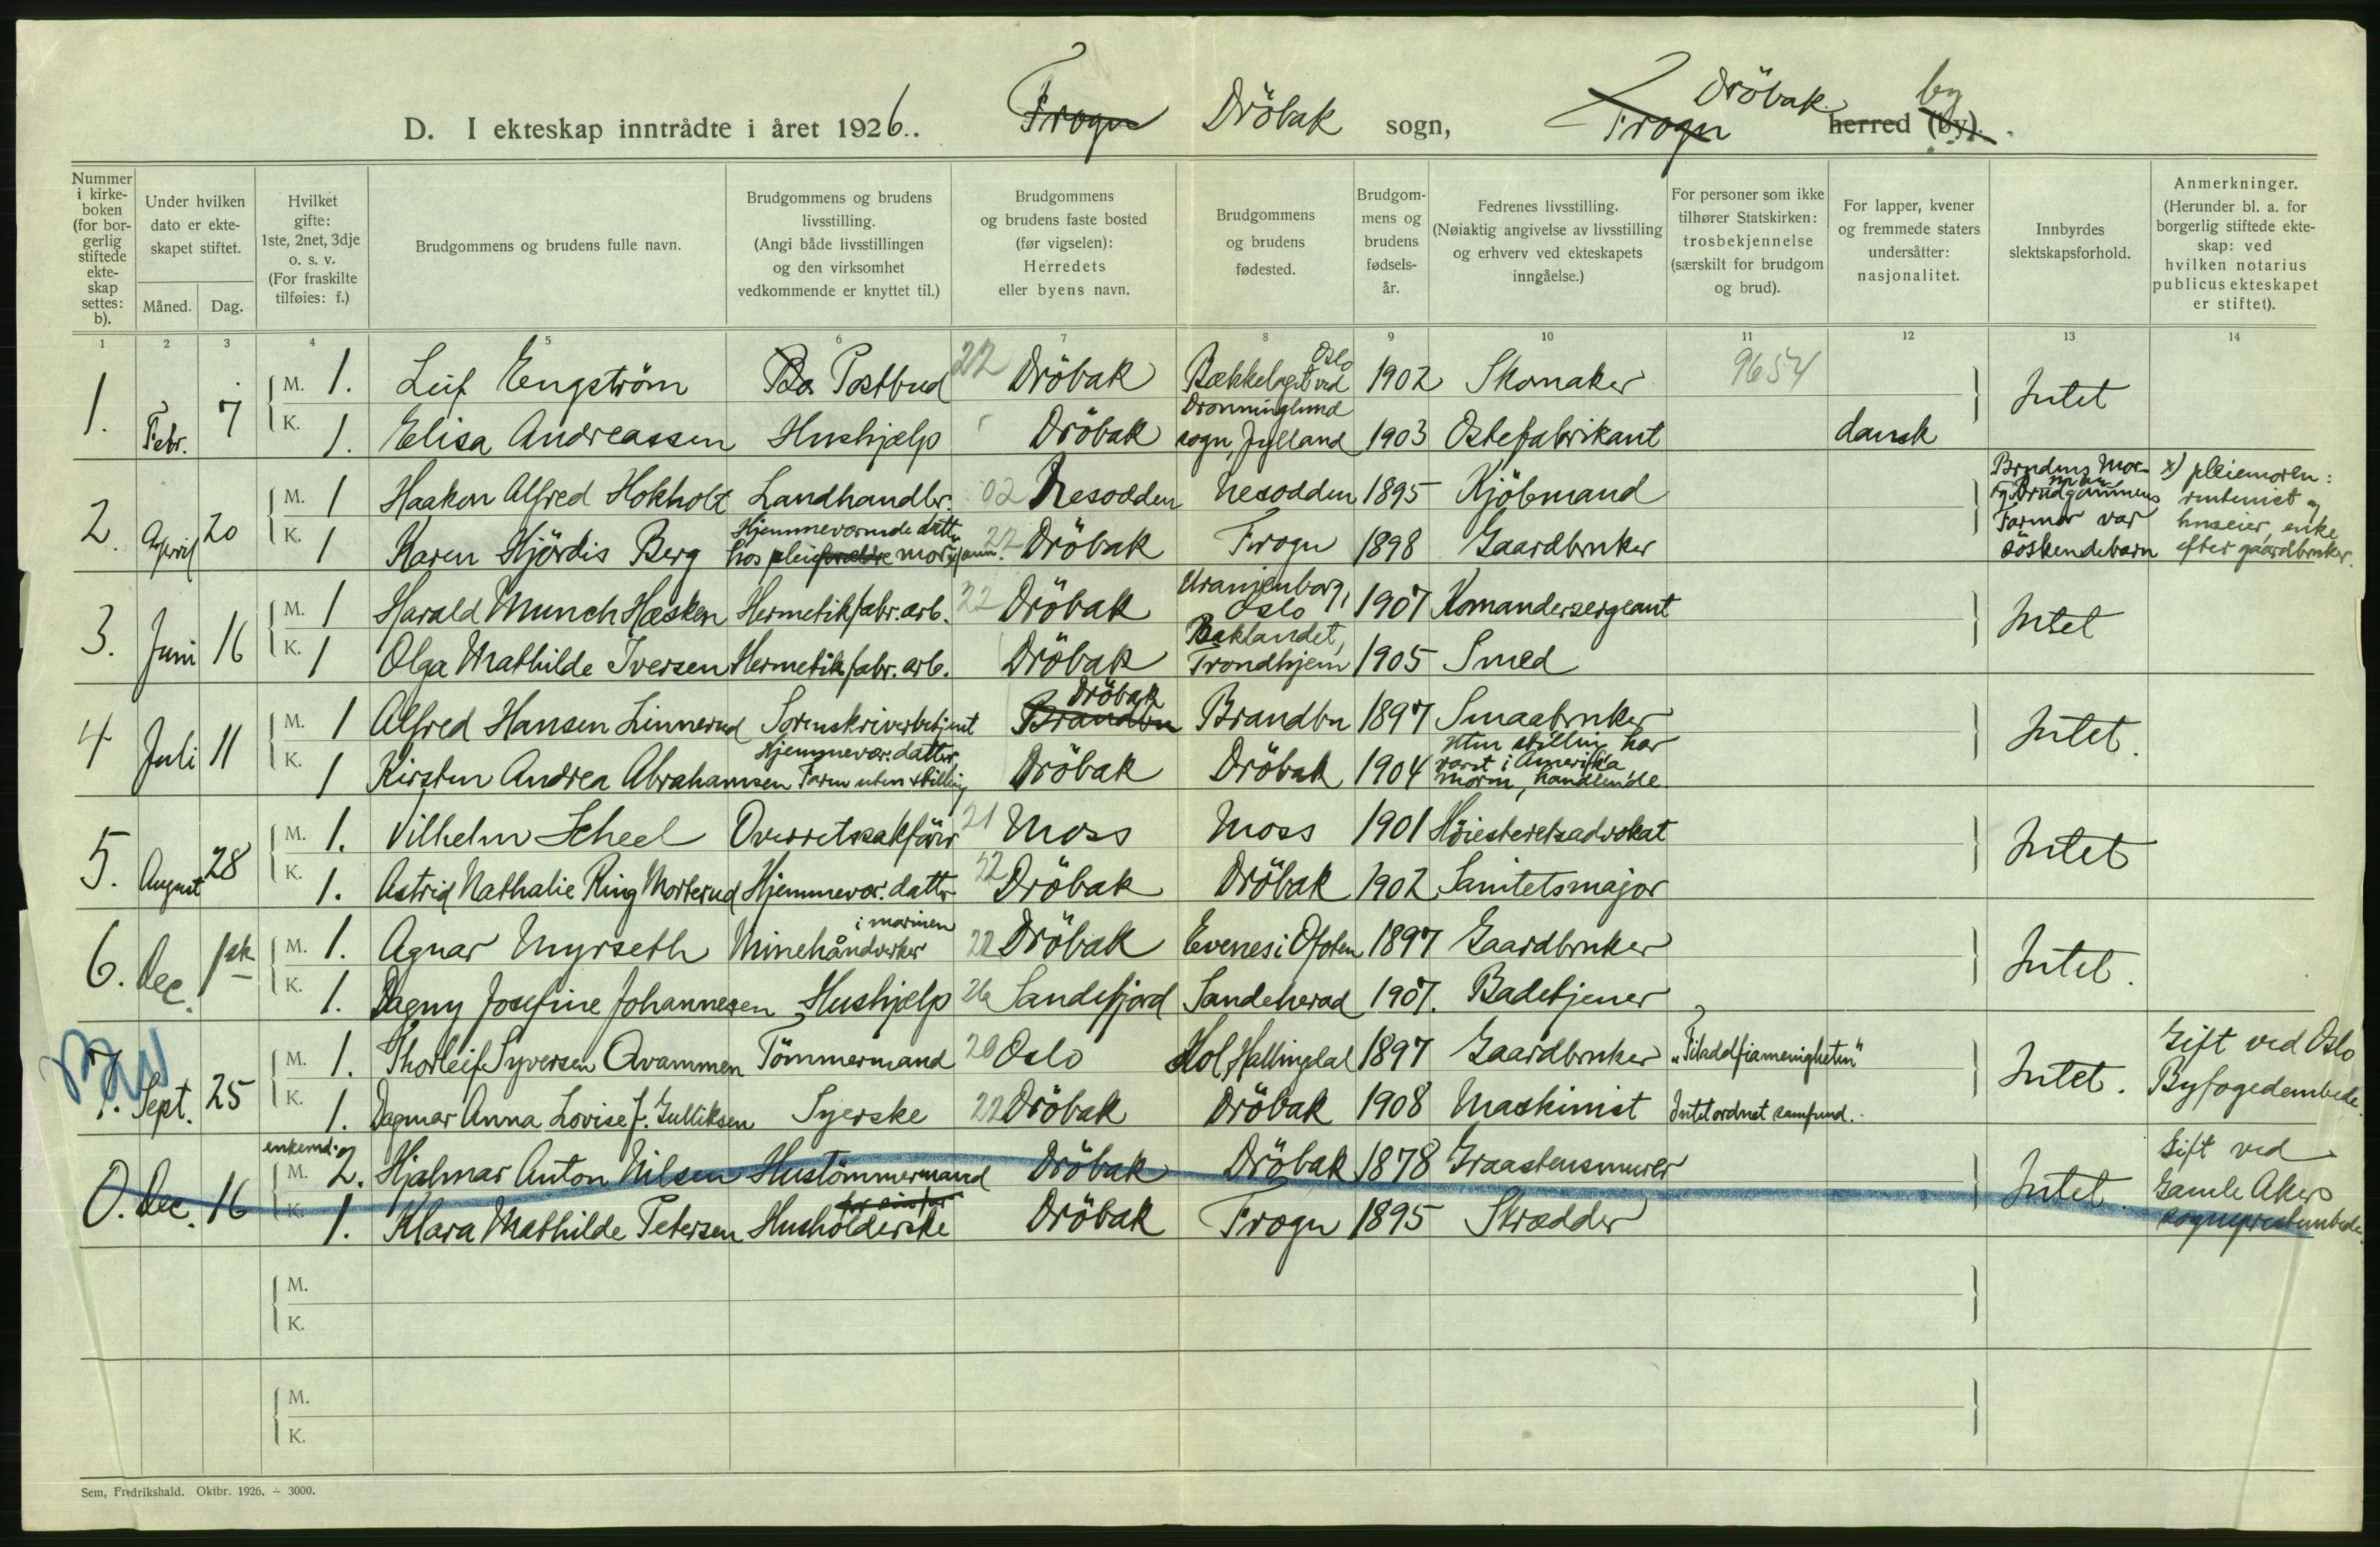 D. I ekteskap inntrådte i året 1926. Frogn Dröbak sogn, Frogn Dröbak herred (by). by
Nummer i kirkeboken (for borgerlig stiftede ekteskap settes: b).
Under hvilken dato er ekteskapet stiftet.
Måned.
Dag.
Hvilket gifte: 1ste, 2net, 3dje o. s. v. (For fraskilte tilføies: f.)
Brudgommens og brudens fulle navn.
Brudgommens og brudens livsstilling. (Angi både livsstillingen og den virksomhet vedkommende er knyttet til.)
Brudgommens og brudens faste bosted (før vigselen): Herredets eller byens navn.
Brudgommens og brudens fødested.
Brudgommens og brudens fødsels-år.
Fedrenes livsstilling. (Nøiaktig angivelse av livsstilling og erhverv ved ekteskapets inngåelse.)
For personer som ikke tilhører Statskirken: trosbekjennelse (særskilt for brudgom og brud).
For lapper, kvener og fremmede staters undersåtter: nasjonalitet.
Innbyrdes slektskapsforhold.
Anmerkninger. (Herunder bl. a. for borgerlig stiftede ekteskap: ved hvilken notarius publicus ekteskapet er stiftet).
1 2 3 4 5 6 7 8 9 10 11 12 13 14
1. Febr. 7 M. 1. Leif Engström Postbud 22 Dröbak Bækkelaget ved Oslo 1902 Skomaker 9654 Intet
K. 1. Elisa Andreassen Hushjælp Dröbak Dronninglund sogn, Jylland 1903 Ostefabrikant dansk
2. April 20 M. 1 Haakon Alfred Hokholt Landhandler. 02 Nesodden Nesodden 1895 Kjöbmand Brudens Mor og Brudgommens Farmor var söskendebarn x) pleiemoren: rentenist og huseier, enke efter gaardbruker.
K. 1 Karen Hjördis Berg Hjemmeværende datter hos pleieforældre mor 22 Dröbak Frogn 1898 Gaardbruker
3. Juni 16 M. 1 Harald Munch Hæsken Hermetikfabr. arb. 22 Dröbak Uranienborg, Oslo 1907 Komandersergeant Intet
K. 1 Olga Mathilde Iversen Hermetikfabr. arb. Dröbak Baklandet, Trondhjem 1905 Smed
4 Juli 11 M. 1 Alfred Hansen Linnerud Sorenskriverbetjent Brandbu Dröbak Brandbu 1897 Smaabruker Intet.
K. 1 Kirsten Andrea Abrahamsen Hjemmevær. datter, Faren uten stilling Dröbak Dröbak 1904 uten stilling har vært i Amerika moren, handlende
5. August 28 M. 1. Vilhelm Scheel Overretssakförer 21 Moss Moss 1901 Höiesteretsadvokat Intet
K. 1. Astrid Nathalie Ring Morterud Hjemmevær. datter 22 Dröbak Dröbak 1902 Sanitetsmajor
6. Dec. 1ste M. 1. Agnar Myrseth Minehåndverker i marinen 22 Dröbak Evenes i Ofoten 1897 Gaardbruker Intet.
K. 1. Dagny Josefine Johannesen Hushjelp 26 Sandefjord Sandeherad 1907. Badetjener
7. Sept. 25 M. 1. Thorleif Syversen Qvammen Tömmermand 20 Oslo Hol, Hallingdal 1897 Gaardbruker „Filadelfiamenigheten" Intet. Gift ved Oslo Byfogedembede.
K. 1. Dagmar Anna Lovise J. Gulliksen Syerske 22 Dröbak Dröbak 1908 Maskinist Intet ordnet samfund.
0. Dec. 16 enkemd. M. 2. Hjalmar Anton Nilsen Hustömmermand Dröbak Dröbak 1878 Graastensmurer Intet. Gift ved Gamle Akers sogneprestembede.
K. 1. Klara Mathilde Petersen Husholderske Dröbak Frogn 1895 Skrædder
M.
K.
M.
K.
Sem, Fredrikshald. Oktbr. 1926. ÷ 3000.